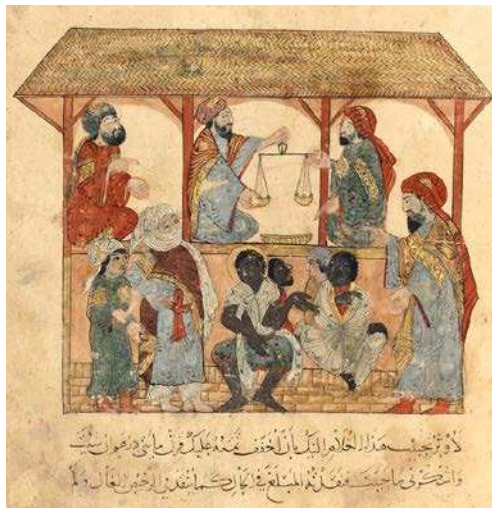 لاوثر تحبيب هذا الغلام اليك بان اخفف ثمنه عليك فزن مائتي درهم ان شئت
واشكر لي ما حييت فنقدته المبلغ في الحال كما ينقد في الرخيص الغال ولم